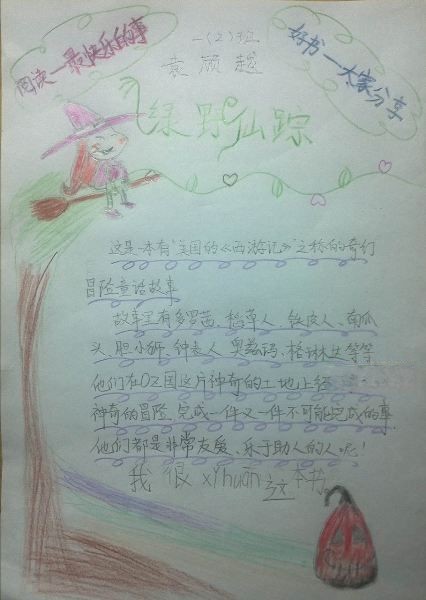 阅读—最快乐的事
一(2)班
好书—大家分享
袁顾越
绿野仙踪
这是一本有"美国的《西游记》"之称的奇幻
冒险童话故事
故事里有多罗茜、稻草人、铁皮人、南瓜
头、胆小狮、钟表人、奥兹玛、格琳达等等
他们在OZ国这片神奇的土地上经
神奇的冒险,完成一件又一件不可能完成的事
他们都是非常友爱、乐于助人的人呢!
我很xǐhuān这本书